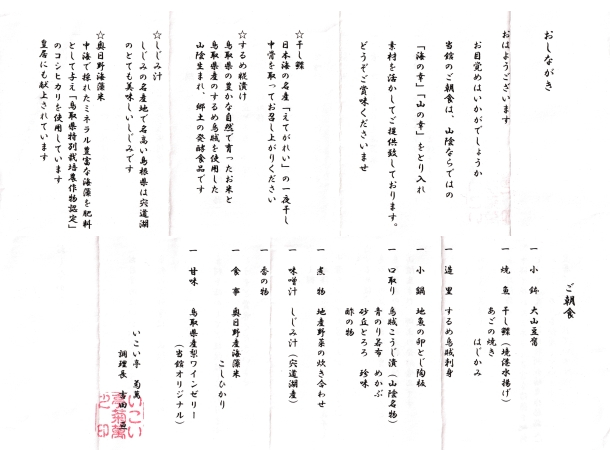 おしながき
おはようございます
お目覚めはいかがでしょうか
当館のご朝食は、山陰ならではの
「海の幸」「山の幸」をとり入れ
素材を活かしてご提供致しております。
どうぞご賞味くださいませ
☆干し鰈
日本海の名産「えてがれい」の一夜干し
中骨を取ってお召し上がりください
☆するめ糀漬け
鳥取県の豊かな自然で育ったお米と
鳥取県産のするめ烏賊を使用した
山陰生まれ、郷土の発酵食品です
☆しじみ汁
しじみの名産地で名高い島根県は宍道湖
のとても美味しいしじみです
☆奥日野海藻米
中海で採れたミネラル豊富な海藻を肥料
として与え「鳥取県特別栽培農作物認定」
のコシヒカリを使用しています
皇居にも献上されています
ご朝食
一 小鉢 大山豆腐
一 焼魚 干し鰈(境港水揚げ)
あごの焼き はじかみ
一 造里 するめ烏賊刺身
一 小鍋 地魚の卵とじ陶板
一 口取り 烏賊こうじ漬(山陰名物)
青のり若布 めかぶ
砂丘とろろ 珍味
酢の物
一 煮物 地産野菜の炊き合わせ
一 味噌汁 しじみ汁(宍道湖産)
一 香の物
一 食事 奥日野産海藻米
こしひかり
一 甘味 鳥取県産梨ワインゼリー
(当館オリジナル)
いこい亭 菊萬
調理長 吉田
いこい
亭菊萬
之印